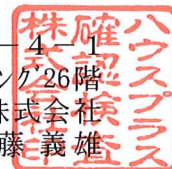 －4－1
ング26階
株式会社
藤 義 雄
ハウスプラス
確認検査
株式会社
印